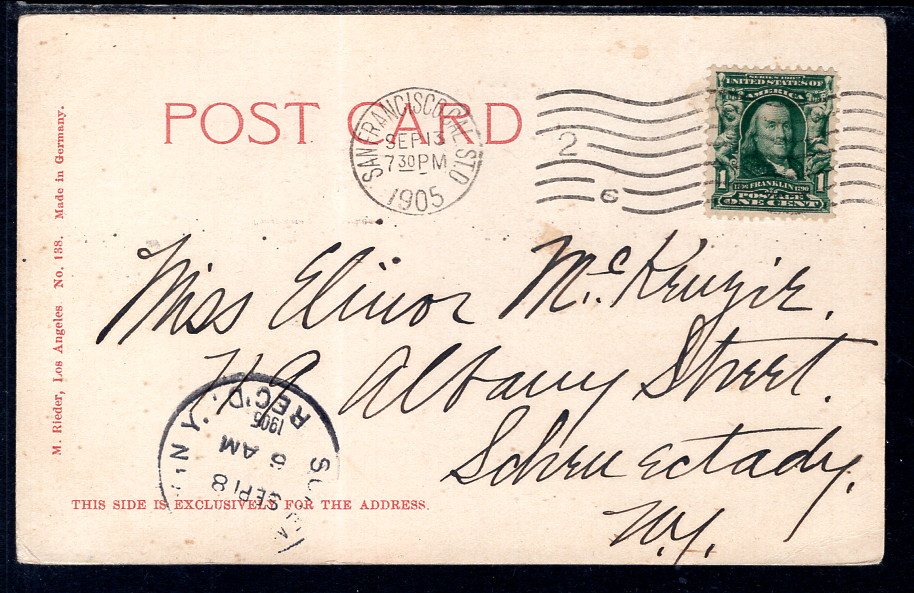 POST CARD
SAN FRANCISCO CAL STA.
SEP 13
7 30 PM
1905
2
6
SERIES 1902
UNITED STATES OF
AMERICA
1706 FRANKLIN 1790
1 POSTAGE 1
ONE CENT
M. Rieder, Los Angeles No. 138. Made in Germany.
Miss Elinor McKenzie.
Albany Street.
Schenectady,
N.Y.
N.Y.
REC'D.
1905
AM
SEP 18
THIS SIDE IS EXCLUSIVELY FOR THE ADDRESS.